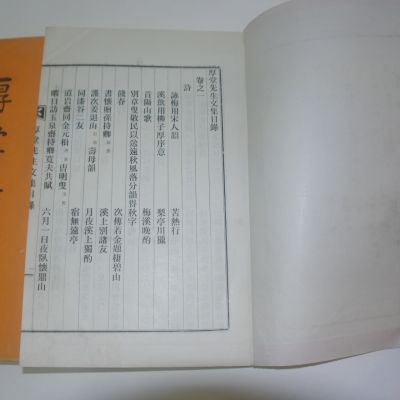 厚堂先生文集目錄
卷之一
詩
詠梅用宋人韻 苦熱行
溪飲用柳子厚序意 梨亭川獵
首陽山歌 梅溪晚酌
別章叟敬民以悲遠秋風落分韻得秋字
餞春 次傅若金題棲碧山
書懷贈孫持卿 溪上別諸友
謹次姜退山 壽母韻 月夜溪上獨酌
同漆谷二友 宿無遠亭
道岩齋同金元相 吉明叟
曉日訪玉泉齋持卿寬夫共賦 六月一日夜臥懷鼎山
厚堂先生文集目錄
厚堂